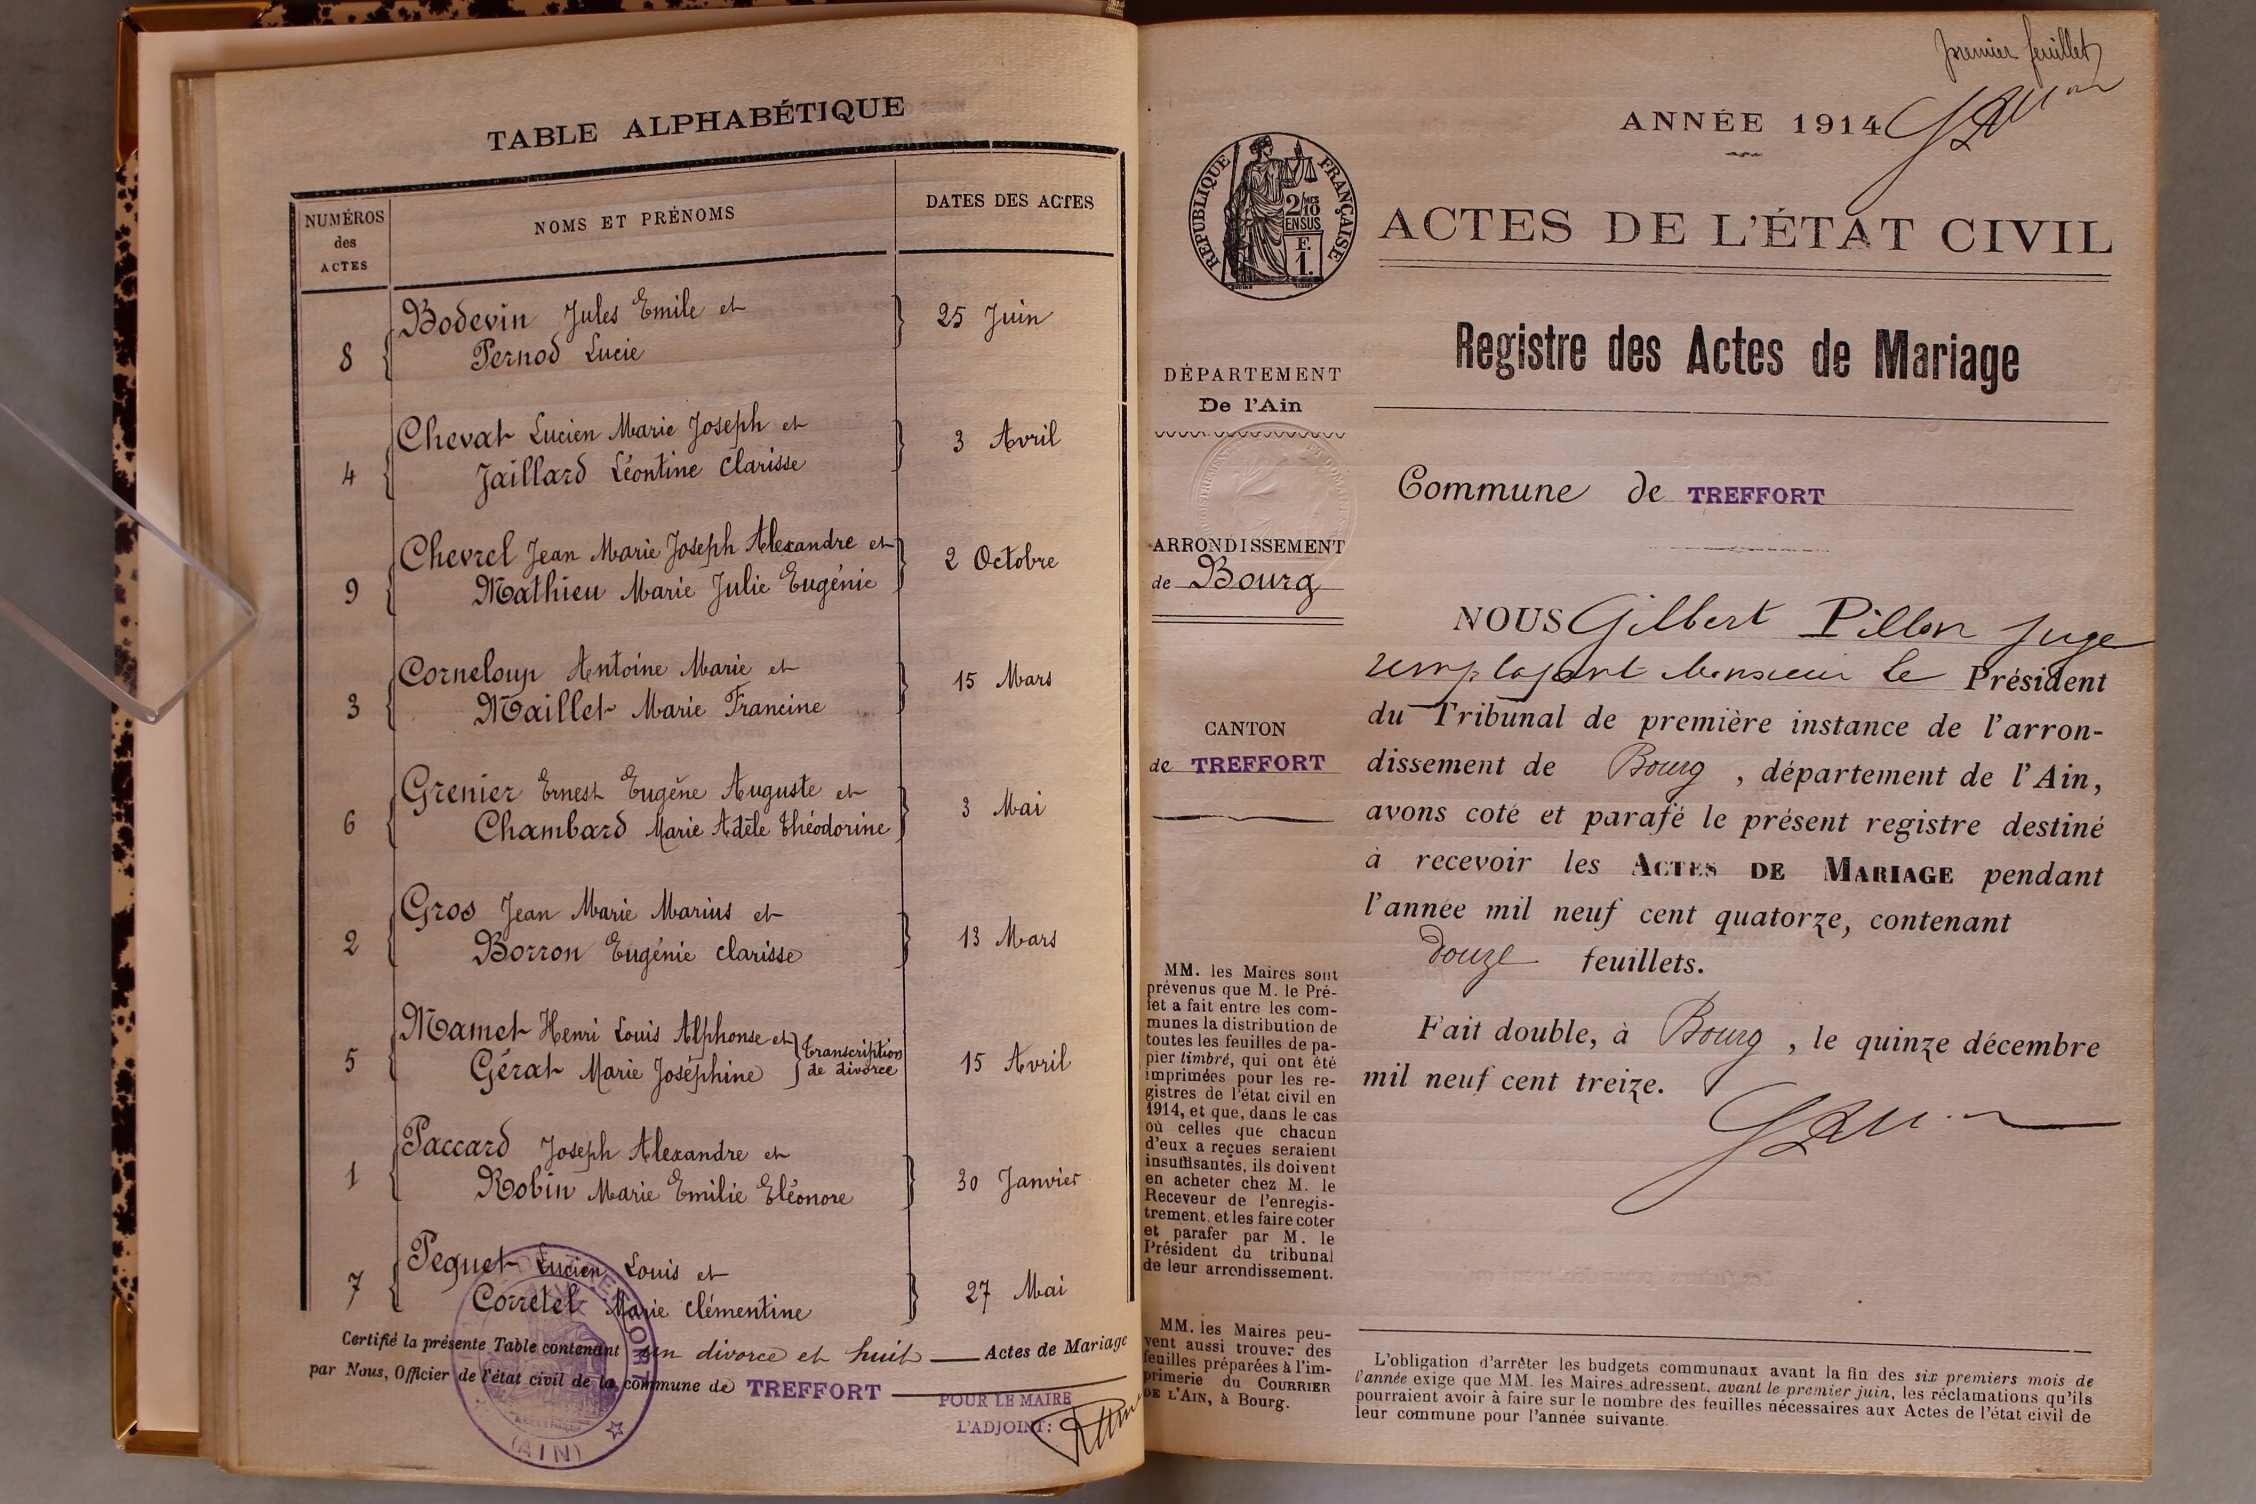 TABLE ALPHABÉTIQUE
NUMÉROS des ACTES
NOMS ET PRÉNOMS
DATES DES ACTES
8 Bodevin Jules Emile et
Pernod Lucie
25 Juin
4 Chevat Lucien Marie Joseph et
Jaillard Léontine Clarisse
3 Avril
9 Chevrel Jean Marie Joseph Alexandre et
Mathieu Marie Julie Eugénie
2 Octobre
3 Corneloup Antoine Marie et
Maillet Marie Francine
15 Mars
6 Grenier Ernest Eugène Auguste et
Chambard Marie Adèle Théodorine
3 Mai
2 Gros Jean Marie Marius et
Borron Eugénie Clarisse
13 Mars
5 Mamet Henri Louis Alphonse et
Gérat Marie Joséphine
Transcription
de divorce
15 Avril
1 Paccard Joseph Alexandre et
Robin Marie Emilie Eléonore
30 Janvier
7 Peguet Lucien Louis et
Corretel Marie Clémentine
27 Mai
Certifié la présente Table contenant un divorce et huit Actes de Mariage
par Nous, Officier de l'état civil de la commune de TREFFORT
POUR LE MAIRE
L'ADJOINT:
TREFFORT
(AIN)
premier feuillet
ANNÉE 1914
REPUBLIQUE FRANÇAISE
2/MES 10
EN SUS
F.
1.
ACTES DE L'ÉTAT CIVIL
Registre des Actes de Mariage
DÉPARTEMENT
De l'Ain
Commune de TREFFORT
ARRONDISSEMENT
de Bourg
CANTON
de TREFFORT
NOUS Gilbert Pillon Juge
remplaçant Monsieur le Président
du Tribunal de première instance de l'arron-
dissement de Bourg, département de l'Ain,
avons coté et parafé le présent registre destiné
à recevoir les ACTES DE MARIAGE pendant
l'année mil neuf cent quatorze, contenant
douze feuillets.
Fait double, à Bourg, le quinze décembre
mil neuf cent treize.
MM. les Maires sont
prévenus que M. le Pré-
fet a fait entre les com-
munes la distribution de
toutes les feuilles de pa-
pier timbré, qui ont été
imprimées pour les re-
gistres de l'état civil en
1914, et que, dans le cas
où celles que chacun
d'eux a reçues seraient
insuffisantes, ils doivent
en acheter chez M. le
Receveur de l'enregis-
trement, et les faire coter
et parafer par M. le
Président du tribunal
de leur arrondissement.
MM. les Maires peu-
vent aussi trouver des
feuilles préparées à l'im-
primerie du COURRIER
DE L'AIN, à Bourg.
L'obligation d'arrêter les budgets communaux avant la fin des six premiers mois de
l'année exige que MM. les Maires adressent, avant le premier juin, les réclamations qu'ils
pourraient avoir à faire sur le nombre des feuilles nécessaires aux Actes de l'état civil de
leur commune pour l'année suivante.